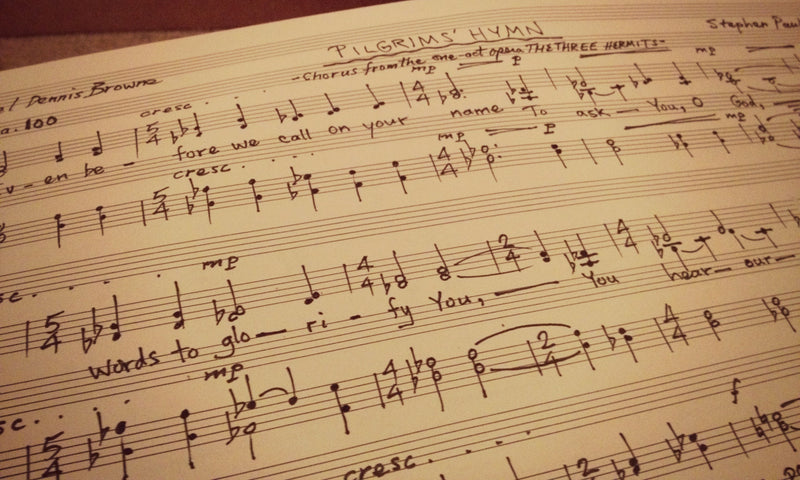 PILGRIMS' HYMN
Stephen Paul
-Chorus from the one-act opera THE THREE HERMITS-
l Dennis Browne
a. 100
cresc. . . .
mp p mp
5 4 4 4
v-en be - fore we call on your name To ask — You, O God,
cresc. . . .
mp p mp
5 4 4 4
sc. . . .
mp
5 4 4 4 2 4 4 4
words to glo — ri - fy You, — You hear — our —
sc. . . .
mp
5 4 4 4 2 4 4 4
f
cresc. . . .
2